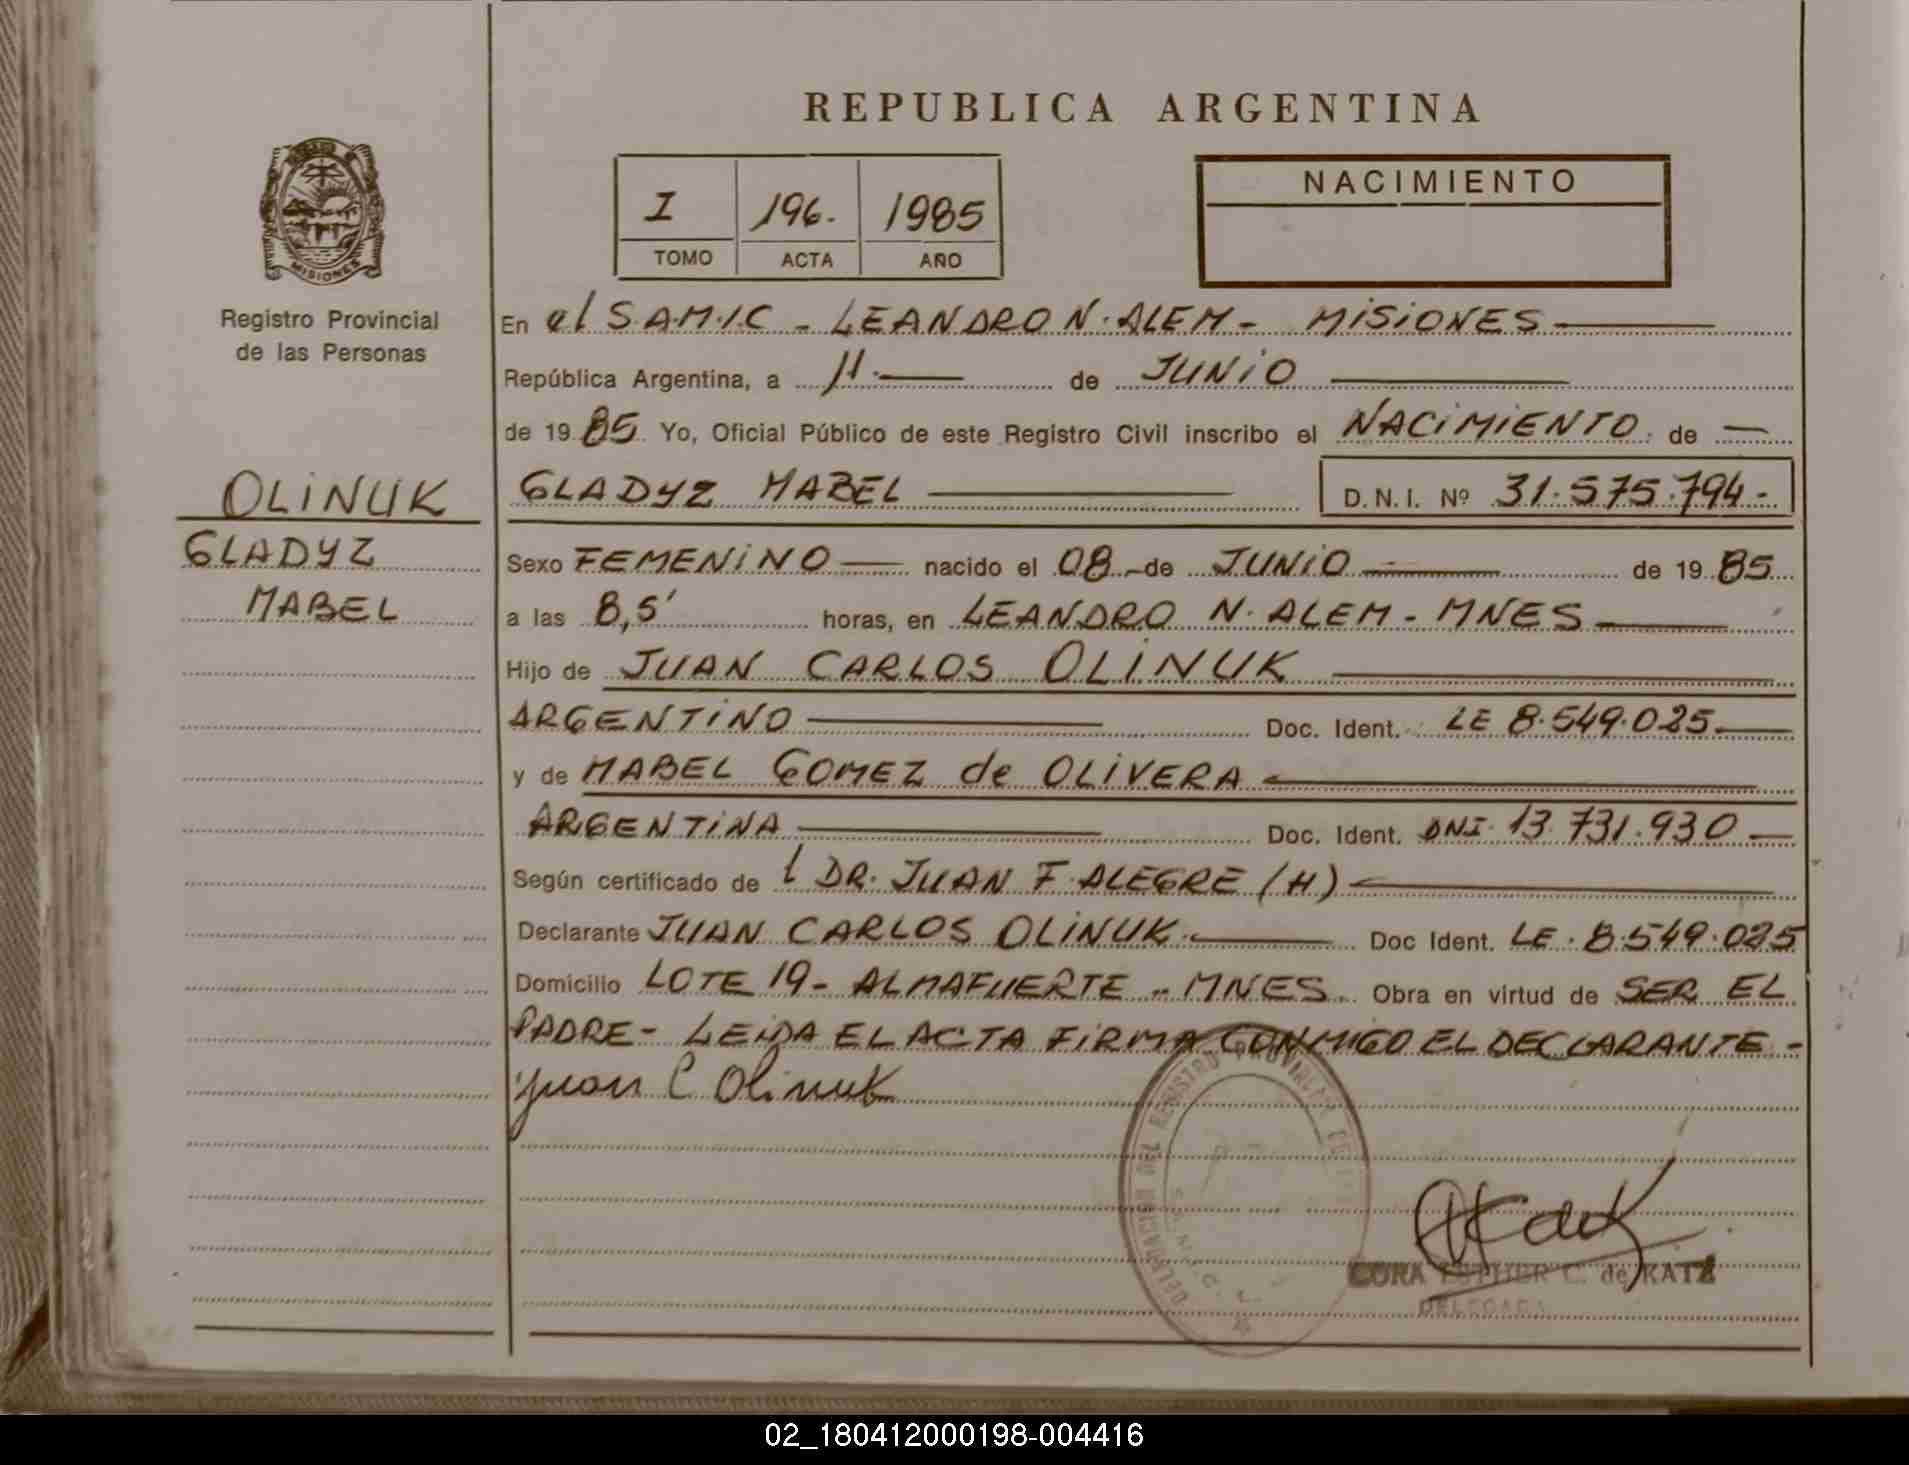 REPUBLICA ARGENTINA
I 196. 1985
TOMO ACTA AÑO
NACIMIENTO
MISIONES
Registro Provincial
de las Personas
OLINUK
GLADYZ
MABEL
En el S.A.M.I.C - LEANDRO N. ALEM - MISIONES
República Argentina, a 11. de JUNIO
de 19 85 Yo, Oficial Público de este Registro Civil inscribo el NACIMIENTO de
GLADYZ MABEL D.N.I. Nº 31.575.794.-
Sexo FEMENINO nacido el 08 de JUNIO de 19 85
a las 8,5' horas, en LEANDRO N. ALEM - MNES
Hijo de JUAN CARLOS OLINUK
ARGENTINO Doc. Ident. LE 8.549.025
y de MABEL GOMEZ de OLIVERA
ARGENTINA Doc. Ident. DNI. 13.731.930
Según certificado de l DR. JUAN F. ALEGRE (H)
Declarante JUAN CARLOS OLINUK. Doc Ident. LE. 8.549.025
Domicilio LOTE 19 - ALMAFUERTE - MNES. Obra en virtud de SER EL
PADRE - LEIDA EL ACTA FIRMA CONMIGO EL DECLARANTE -
Juan C Olinuk
DEL REGISTRO
CORA ESTHER C. de KATZ
DELEGADA
02_180412000198-004416